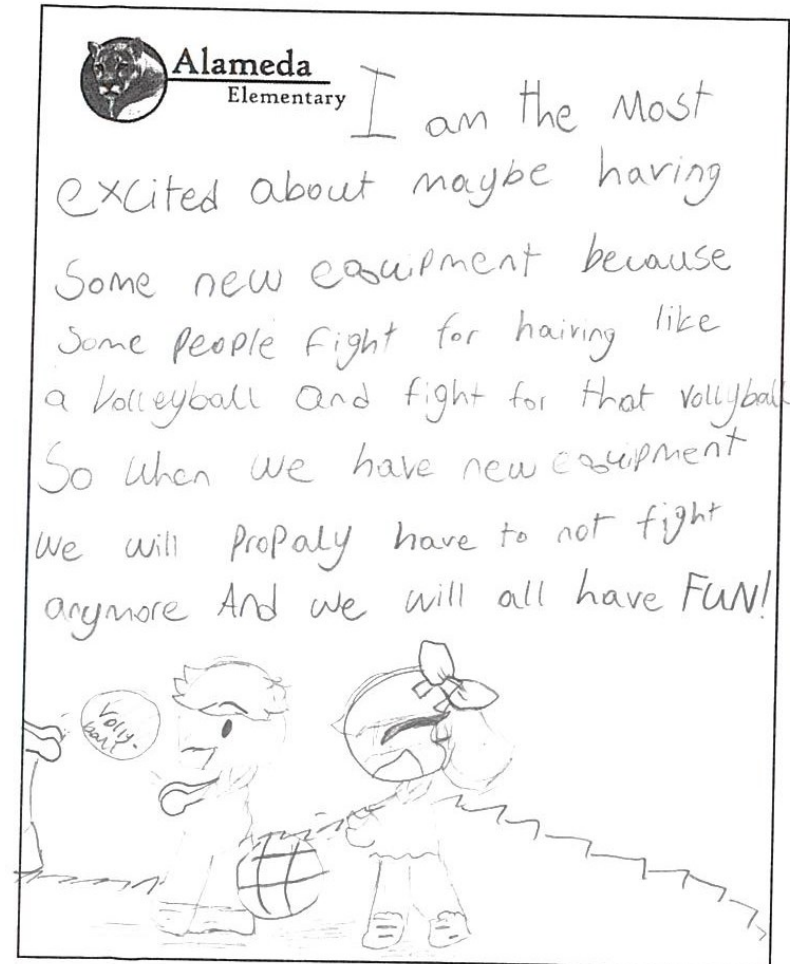 Alameda
Elementary
I am the Most
excited about maybe having
Some new equipment because
Some people fight for haiving like
a Volleyball and fight for that vollyball
So when we have new equipment
we will Propaly have to not fight
anymore And we will all have FUN!
Volly-
ball